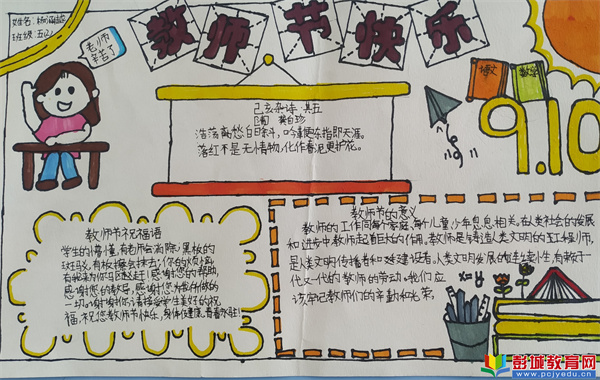 姓名:
班级:五(2)
教师节快乐
老师
辛苦了
语文
数学
9.10
己亥杂诗·其五
[清] 龚自珍
浩荡离愁白日斜,吟鞭东指即天涯。
落红不是无情物,化作春泥更护花。
教师节祝福语
学生的懵懂,有老师会消除;黑板的
斑驳,有板擦会抹去;你的烦恼,
有我来为你
感谢您的帮助,
感谢您的教导,感谢您为我所做的
一切。谢谢你,请接受学生美好的祝
福,祝您教师节快乐,身体健康,青春永驻!
教师节的意义
教师的工作同每个家庭、每个儿童、少年息息相关。在人类社会的发展
和进步中,教师起着巨大的作用。教师是铸造人类文明的工程师,
是人类文明传播者和建设者。人类文明发展的连续性久,有赖于
一代又一代的教师的劳动。我们应
该牢记教师们的辛勤和光荣。
x=y
彭城教育网
www.pcjyedu.cn